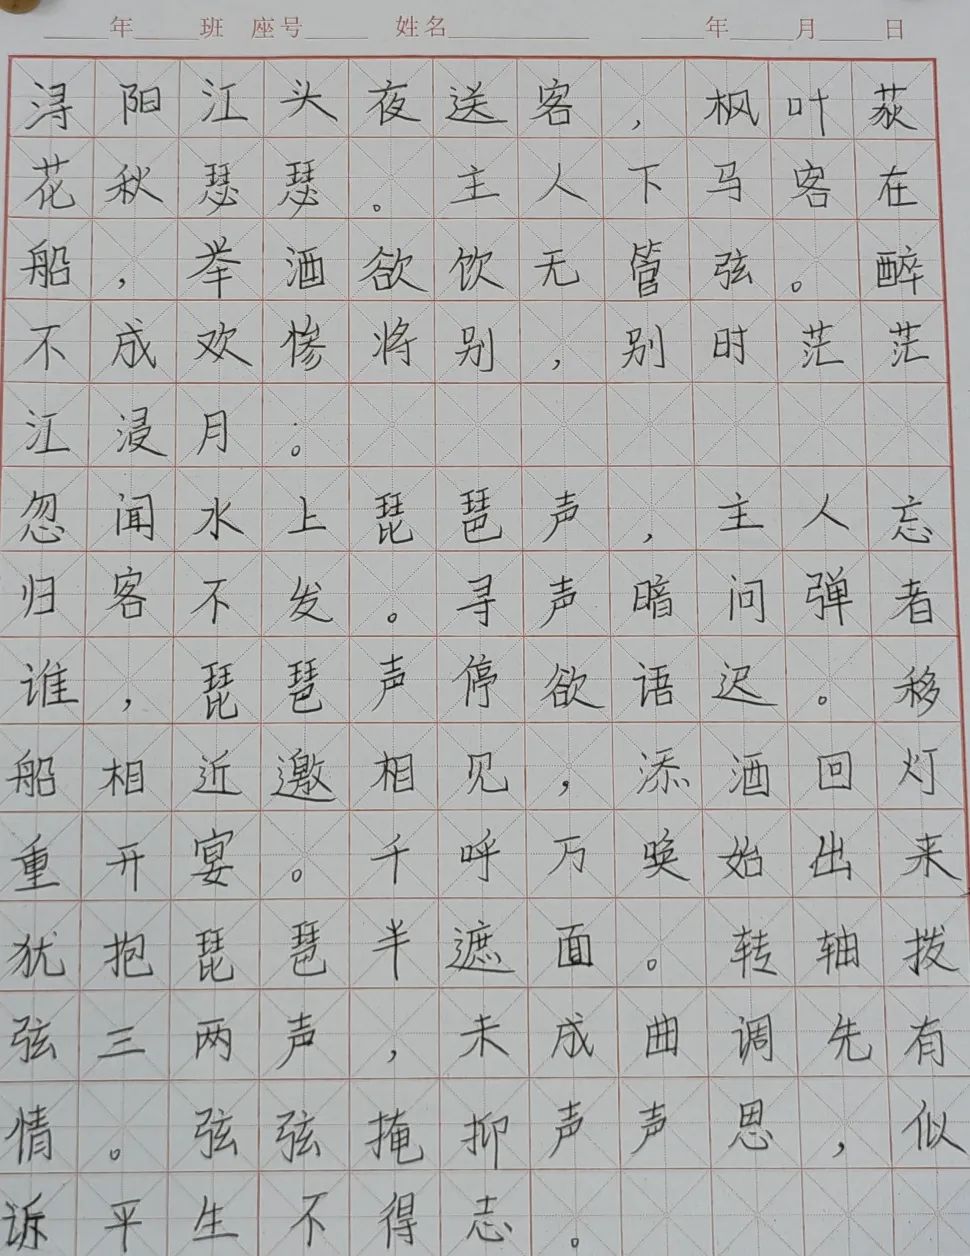 ____年____班 座号____ 姓名________ ____年____月____日
浔阳江头夜送客，枫叶荻
花秋瑟瑟。主人下马客在
船，举酒欲饮无管弦。醉
不成欢惨将别，别时茫茫
江浸月。
忽闻水上琵琶声，主人忘
归客不发。寻声暗问弹者
谁，琵琶声停欲语迟。移
船相近邀相见，添酒回灯
重开宴。千呼万唤始出来
犹抱琵琶半遮面。转轴拨
弦三两声，未成曲调先有
情。弦弦掩抑声声思，似
诉平生不得志。